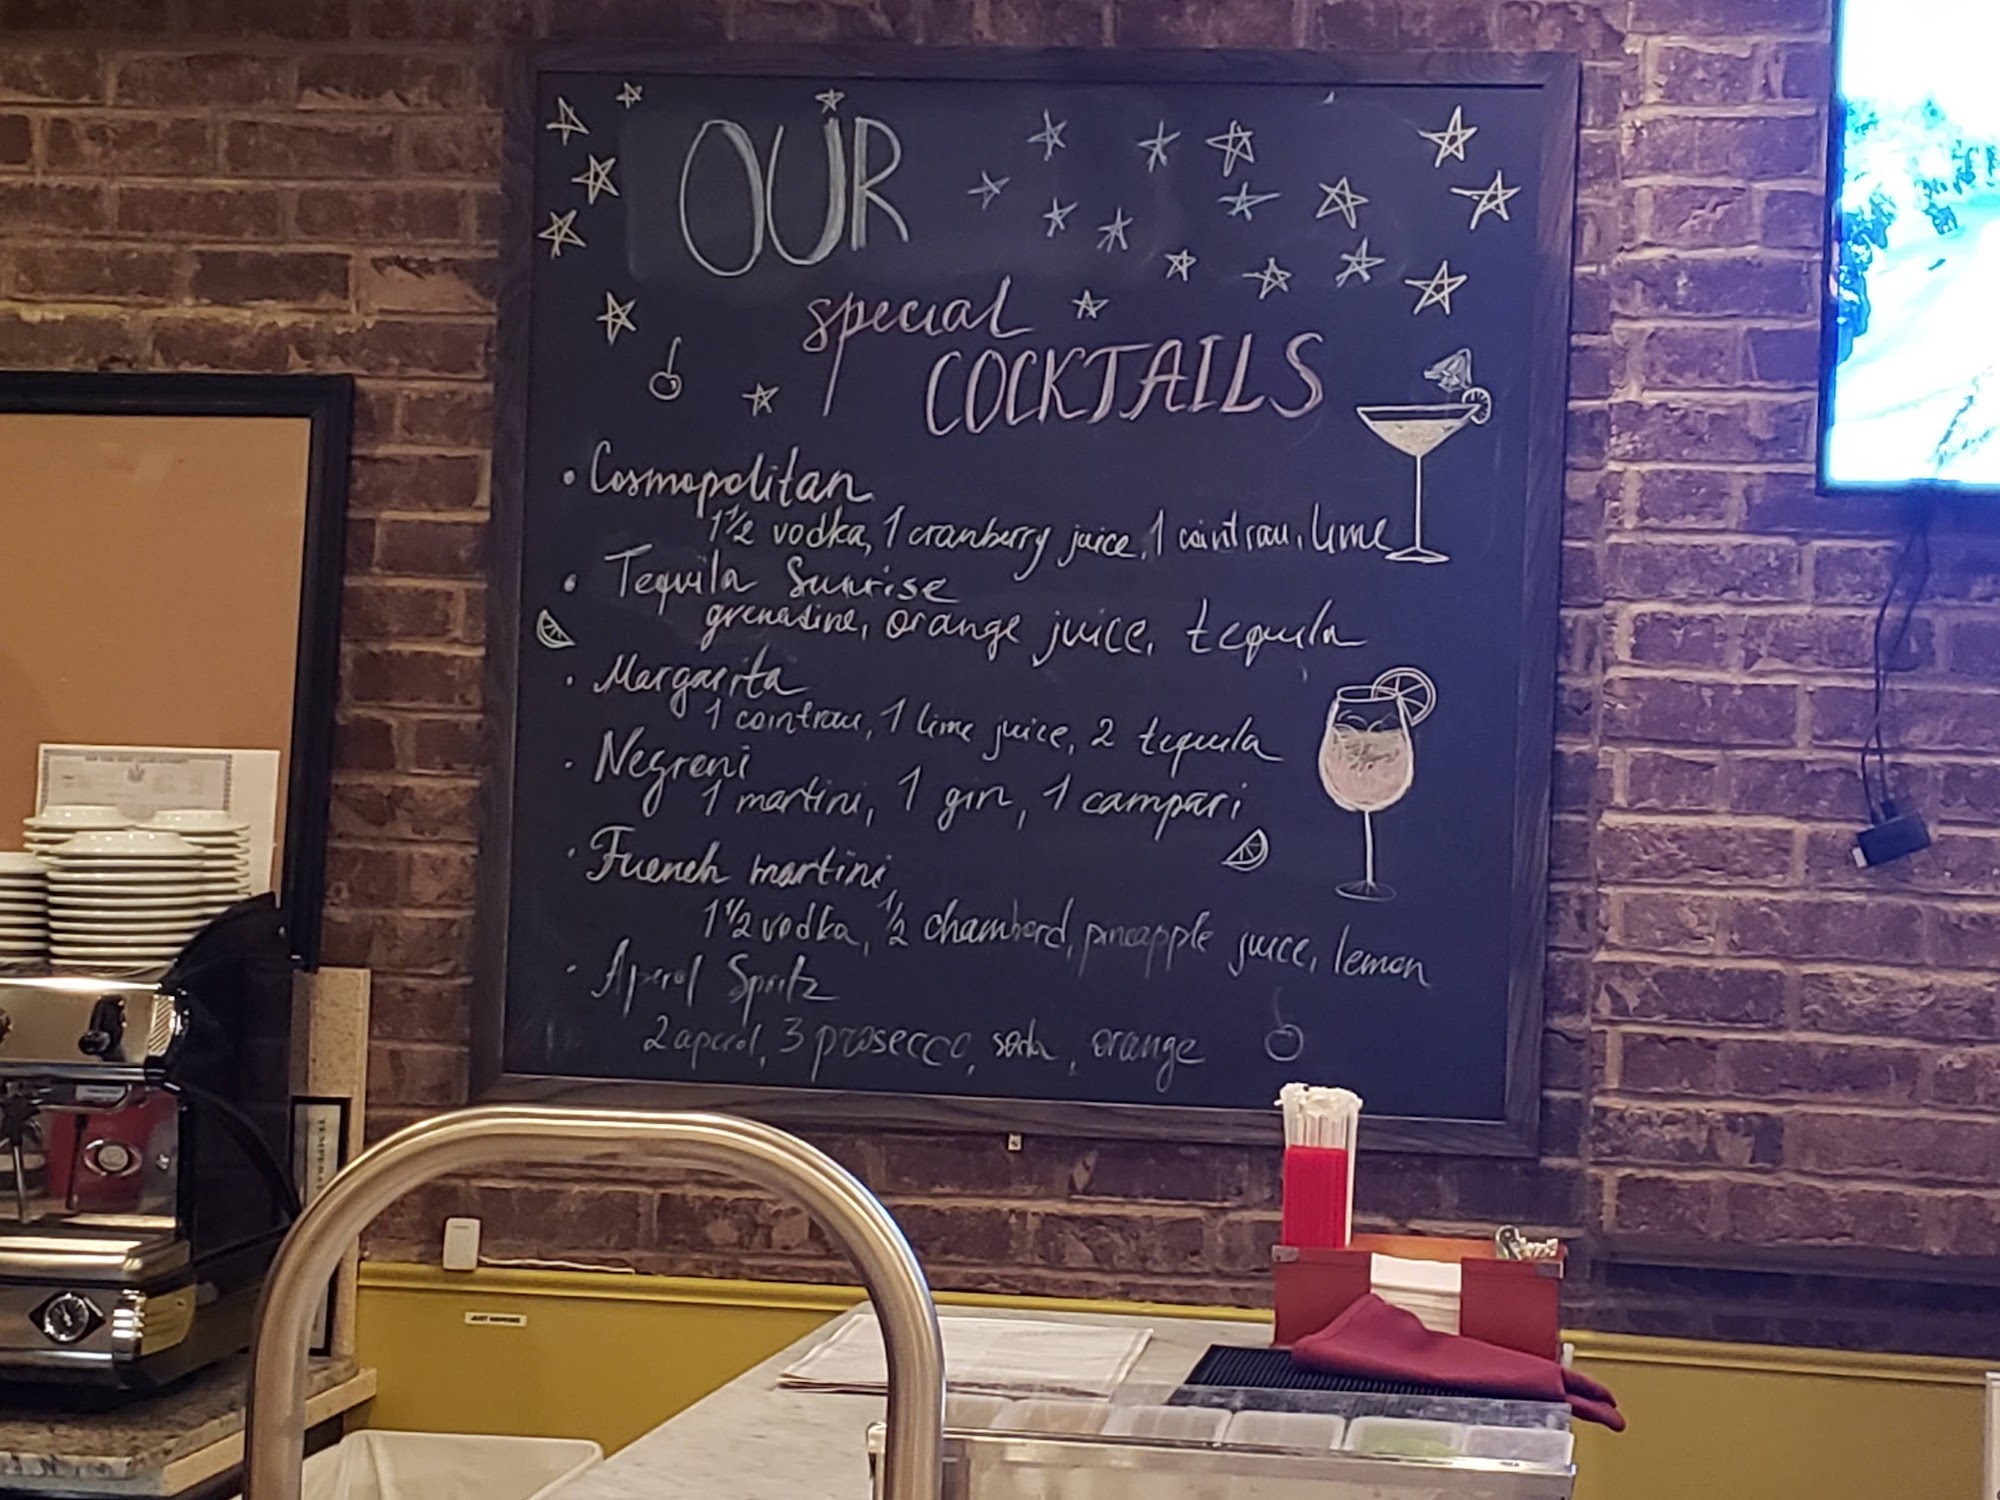 OUR
special
COCKTAILS
• Cosmopolitan
1 1/2 vodka, 1 cranberry juice, 1 cointrau, lime
• Tequila Sunrise
grenadine, orange juice, tequila
• Margarita
1 cointrau, 1 lime juice, 2 tequila
• Negroni
1 martini, 1 gin, 1 campari
• French martini
1 1/2 vodka, 1/2 chambord, pineapple juice, lemon
• Aperol Spritz
2 aperol, 3 prosecco, soda, orange